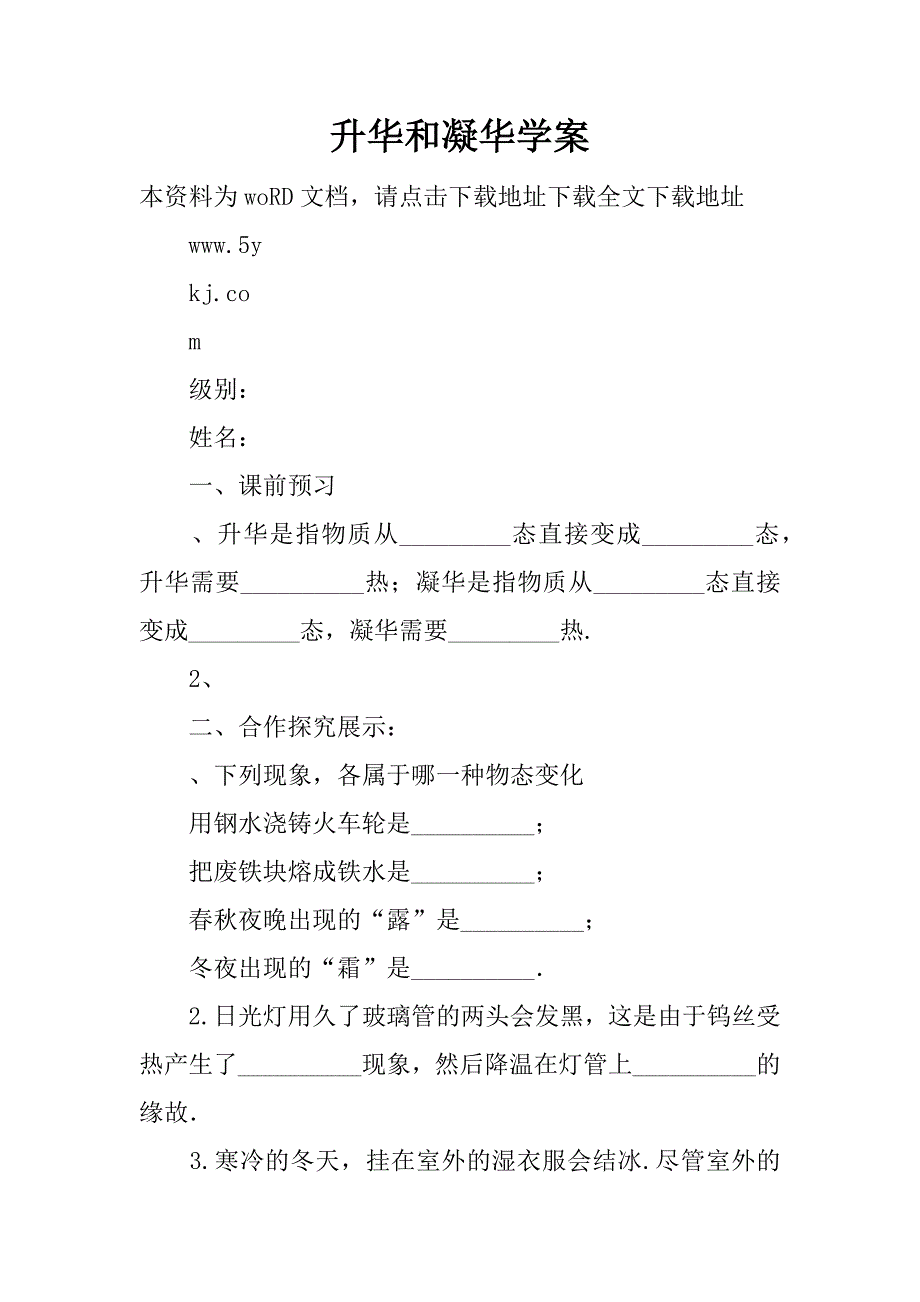 升华和凝华学案
本资料为woRD文档，请点击下载地址下载全文下载地址
www.5y
kj.co
m
级别：
姓名：
一、课前预习
、升华是指物质从_________态直接变成_________态，
升华需要__________热；凝华是指物质从_________态直接
变成_________态，凝华需要_________热.
2、
二、合作探究展示：
、下列现象，各属于哪一种物态变化
用钢水浇铸火车轮是__________；
把废铁块熔成铁水是__________；
春秋夜晚出现的“露”是__________；
冬夜出现的“霜”是__________．
2.日光灯用久了玻璃管的两头会发黑，这是由于钨丝受
热产生了__________现象，然后降温在灯管上__________的
缘故．
3.寒冷的冬天，挂在室外的湿衣服会结冰.尽管室外的